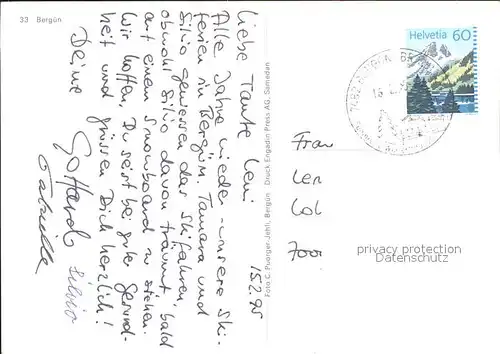 33 Bergün
15.2.95
Liebe Tante Leni
Alle Jahre wieder - unsere Ski-
ferien in Bergün. Tamara und
Silvio geniessen das Skifahren,
obwohl Silvio davon träumt, bald
auf einem Snowboard zu stehen.
Wir hoffen, Du seist bei guter Gesund-
heit und grüssen Dich herzlich!
Deine
Gotthard Silvio
Gabrielle
Foto C. Puorger-Jehli, Bergün Druck Engadin Press AG, Samedan
Helvetia 60
7482
Frau
Len
Col
7000
privacy protection
Datenschutz